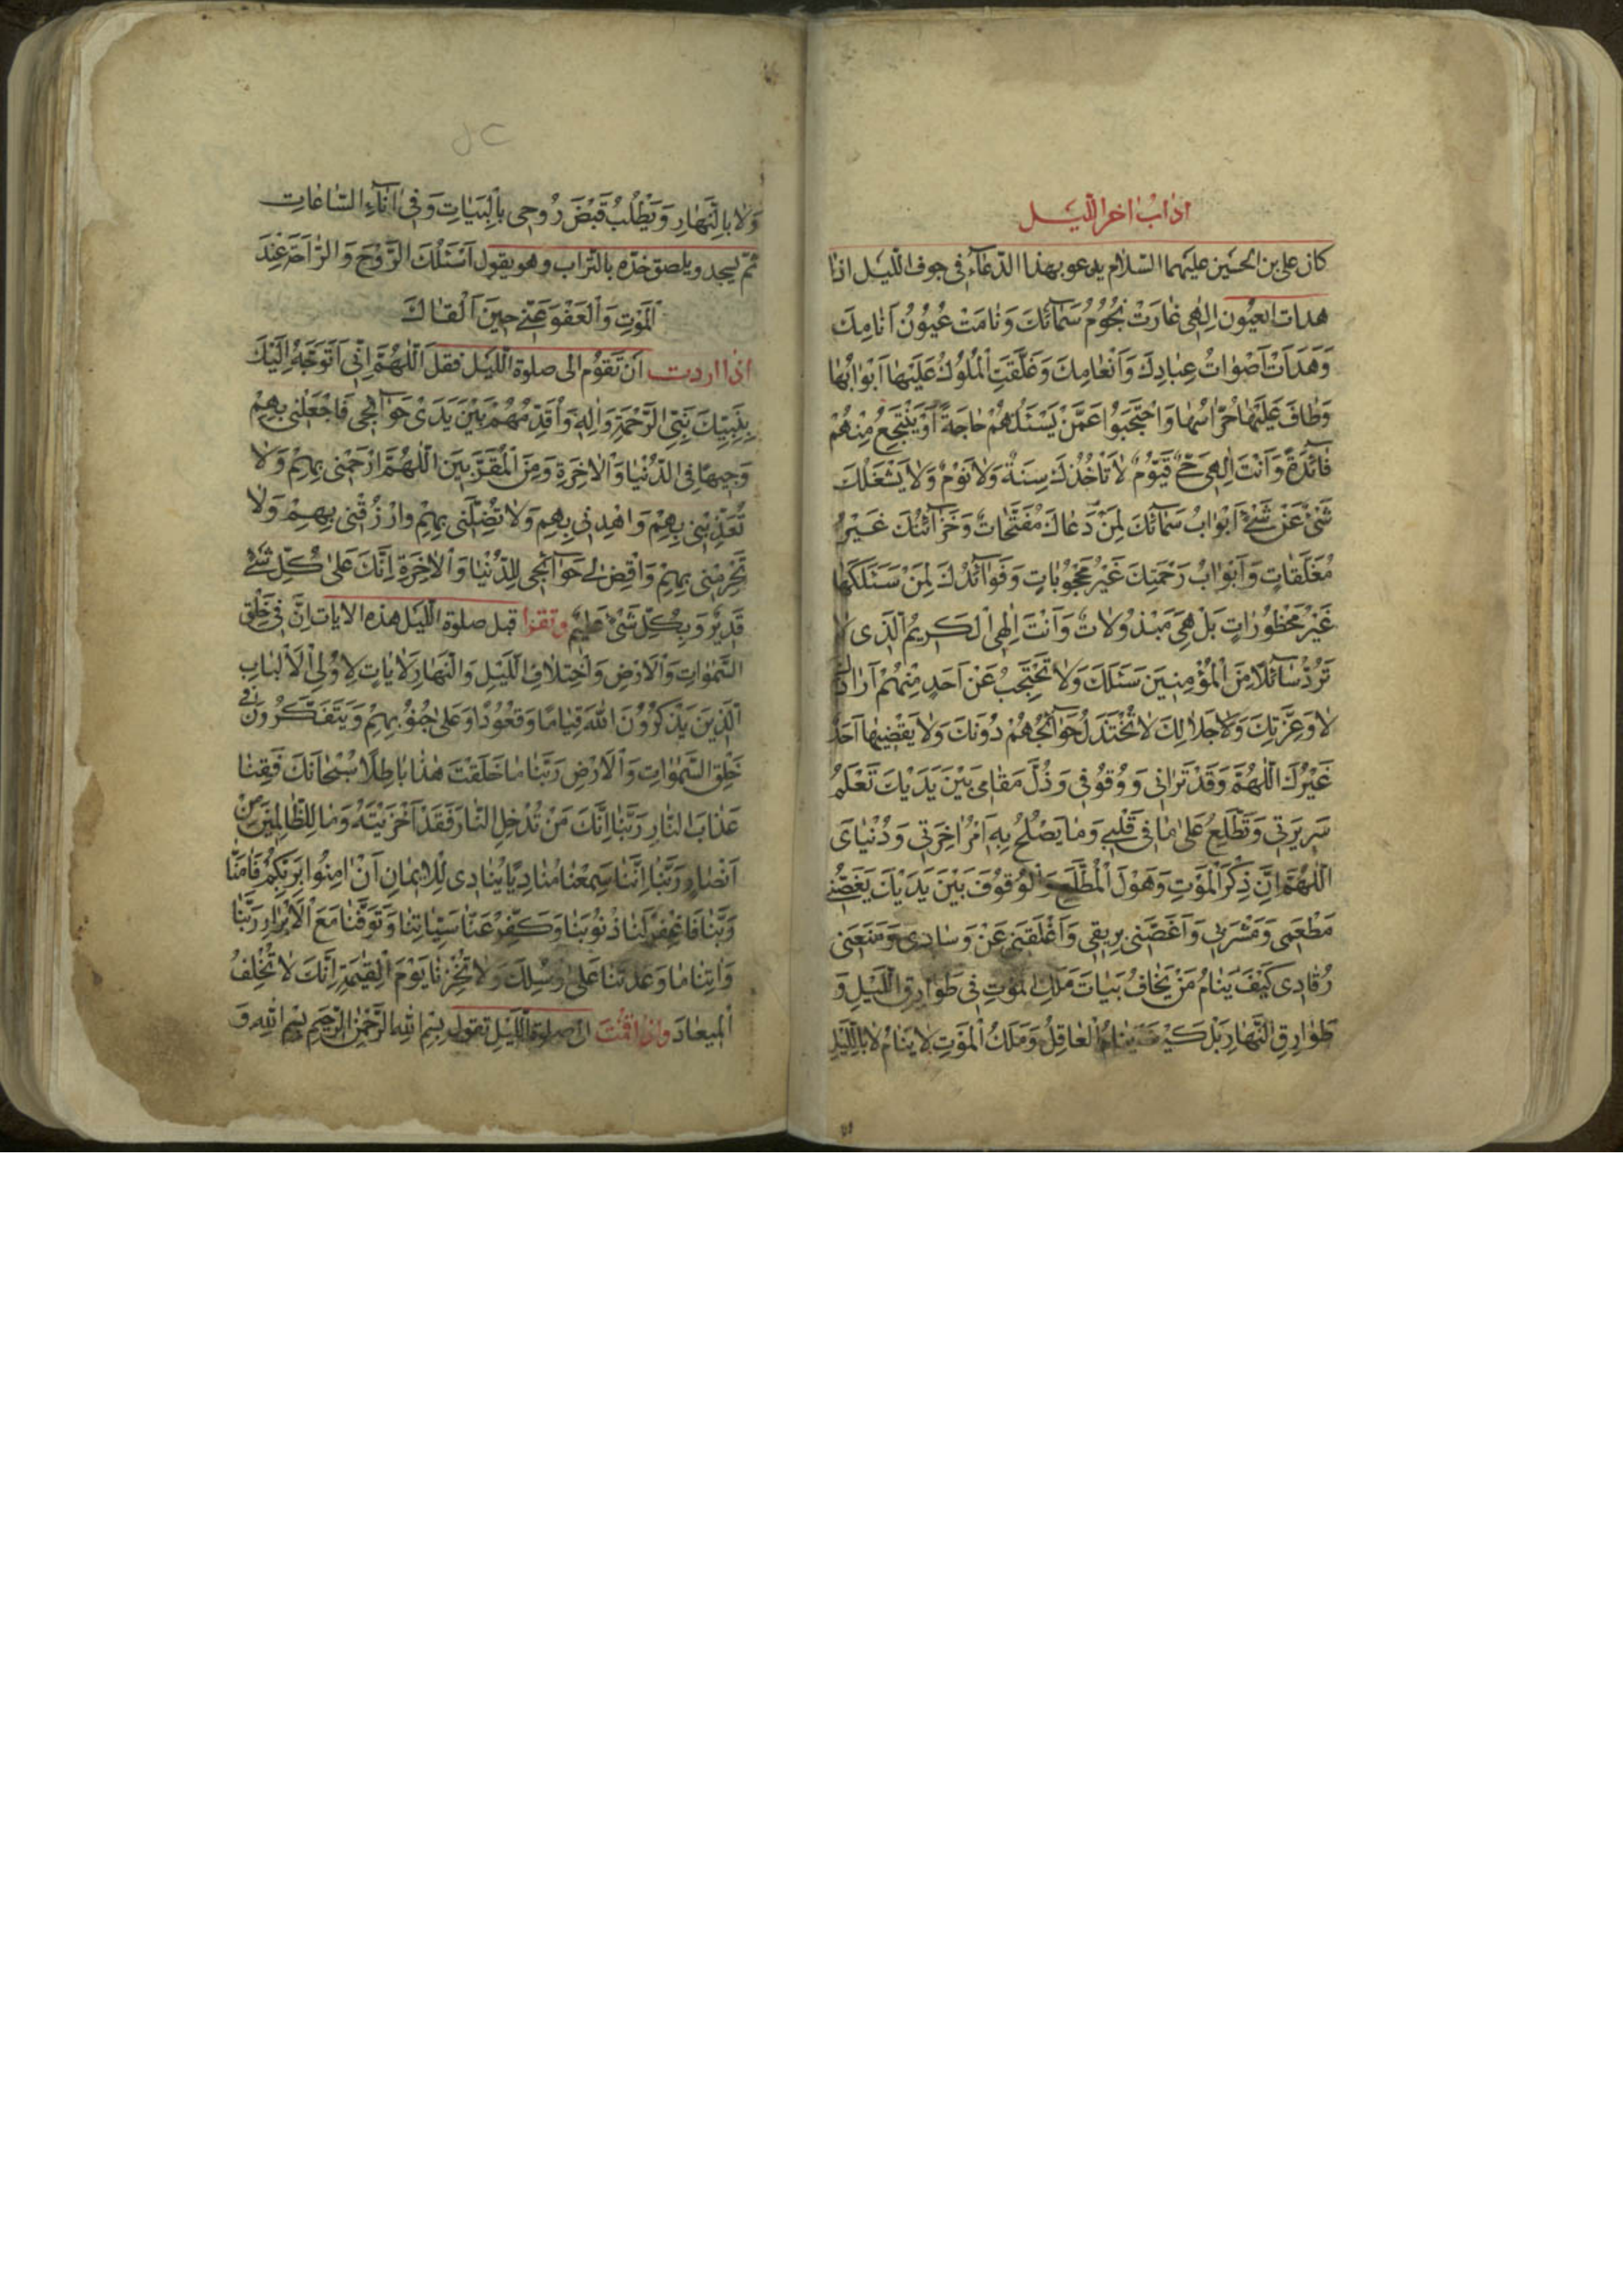 اداب اخر اللیل
كان على بن الحسين عليهما السلام يدعو بهذا الدعاء في جوف الليل اذا
هدات العيون اِلٰهى غٰارَتْ نُجُومُ سَمٰآئِكَ وَنٰامَتْ عُيُونُ اَنٰامِكَ
وَهَدَاَتْ اَصْوٰاتُ عِبٰادِكَ وَاَنْعٰامِكَ وَغَلَّقَتِ الْمُلُوكُ عَلَيْهٰا اَبْوٰابَهٰا
وَطٰافَ عَلَيْهٰا حُرّٰاسُهٰا وَاحْتَجَبُوا عَمَّنْ يَسْئَلُهُمْ حٰاجَةً اَوْ يَنْتَجِعُ مِنْهُمْ
فٰآئِدَةً وَاَنْتَ اِلٰهى حَىٌّ قَيُّومٌ لٰا تَأْخُذُكَ سِنَةٌ وَلٰا نَوْمٌ وَلٰا يَشْغَلُكَ
شَىْءٌ عَنْ شَىْءٍ اَبْوٰابُ سَمٰآئِكَ لِمَنْ دَعٰاكَ مُفَتَّحٰاتٌ وَخَزٰآئِنُكَ غَيْرُ
مُغَلَّقٰاتٍ وَاَبْوٰابُ رَحْمَتِكَ غَيْرُ مَحْجُوبٰاتٍ وَفَوٰآئِدُكَ لِمَنْ سَئَلَكَهٰا
غَيْرُ مَحْظُورٰاتٍ بَلْ هِىَ مَبْذُولٰاتٌ وَاَنْتَ اِلٰهِى الْكَريمُ الَّذى لٰا
تَرُدُّ سٰآئِلًا مِنَ الْمُؤْمِنينَ سَئَلَكَ وَلٰا تَحْتَجِبُ عَنْ اَحَدٍ مِنْهُمْ اَرٰادَكَ
لٰا وَعِزَّتِكَ وَلٰا جَلٰالِكَ لٰا تُخْتَذَلُ حَوٰآئِجُهُمْ دُونَكَ وَلٰا يَقْضيهٰا اَحَدٌ
غَيْرُكَ اَللّٰهُمَّ وَقَدْ تَرٰانى وَوُقُوفى وَذُلَّ مَقٰامى بَيْنَ يَدَيْكَ تَعْلَمُ
سَريرَتى وَتَطَّلِعُ عَلىٰ مٰا فى قَلْبى وَمٰا يَصْلُحُ بِهِ اَمْرُ اٰخِرَتى وَدُنْيٰاىَ
اَللّٰهُمَّ اِنَّ ذِكْرَ الْمَوْتِ وَهَوْلَ الْمُطَّلَعِ وَالْوُقُوفَ بَيْنَ يَدَيْكَ نَغَّصَنى
مَطْعَمى وَمَشْرَبى وَاَغَصَّنى بِريقى وَاَقْلَقَنى عَنْ وِسٰادى وَمَنَعَنى
رُقٰادى كَيْفَ يَنٰامُ مَنْ يَخٰافُ بَيٰاتَ مَلَكِ الْمَوْتِ فى طَوٰارِقِ اللَّيْلِ وَ
طَوٰارِقِ النَّهٰارِ بَلْ كَيْفَ يَنٰامُ الْعٰاقِلُ وَمَلَكُ الْمَوْتِ لٰا يَنٰامُ لٰا بِاللَّيْلِ
وَلٰا بِالنَّهٰارِ وَيَطْلُبُ قَبْضَ رُوحى بِالْبَيٰاتِ وَفى اٰنٰآءِ السّٰاعٰاتِ
ثم يسجد ويلصق خده بالتراب وهو يقول اَسْئَلُكَ الرَّوْحَ وَالرّٰاحَةَ عِنْدَ
الْمَوْتِ وَالْعَفْوَ عَنّى حينَ اَلْقٰاكَ
اذا اردت ان تقوم الى صلوة الليل فقل اَللّٰهُمَّ اِنّى اَتَوَجَّهُ اِلَيْكَ
بِنَبِيِّكَ نَبِىِّ الرَّحْمَةِ وَاٰلِهِ وَاُقَدِّمُهُمْ بَيْنَ يَدَىْ حَوٰآئِجى فَاجْعَلْنى بِهِمْ
وَجيهًا فِى الدُّنْيٰا وَالْاٰخِرَةِ وَمِنَ الْمُقَرَّبينَ اَللّٰهُمَّ ارْحَمْنى بِهِمْ وَلٰا
تُعَذِّبْنى بِهِمْ وَاهْدِنى بِهِمْ وَلٰا تُضِلَّنى بِهِمْ وَارْزُقْنى بِهِمْ وَلٰا
تَحْرِمْنى بِهِمْ وَاقْضِ لى حَوٰآئِجى لِلدُّنْيٰا وَالْاٰخِرَةِ اِنَّكَ عَلىٰ كُلِّ شَىْءٍ
قَديرٌ وَبِكُلِّ شَىْءٍ عَليمٌ وتقرا قبل صلوة الليل هذه الايات اِنَّ فى خَلْقِ
السَّمٰوٰاتِ وَالْاَرْضِ وَاخْتِلٰافِ اللَّيْلِ وَالنَّهٰارِ لَاٰيٰاتٍ لِاُولِى الْاَلْبٰابِ
اَلَّذينَ يَذْكُرُونَ اللّٰهَ قِيٰامًا وَقُعُودًا وَعَلىٰ جُنُوبِهِمْ وَيَتَفَكَّرُونَ فى
خَلْقِ السَّمٰوٰاتِ وَالْاَرْضِ رَبَّنٰا مٰا خَلَقْتَ هٰذٰا بٰاطِلًا سُبْحٰانَكَ فَقِنٰا
عَذٰابَ النّٰارِ رَبَّنٰا اِنَّكَ مَنْ تُدْخِلِ النّٰارَ فَقَدْ اَخْزَيْتَهُ وَمٰا لِلظّٰالِمينَ مِنْ
اَنْصٰارٍ رَبَّنٰا اِنَّنٰا سَمِعْنٰا مُنٰادِيًا يُنٰادى لِلْايمٰانِ اَنْ اٰمِنُوا بِرَبِّكُمْ فَاٰمَنّٰا
رَبَّنٰا فَاغْفِرْ لَنٰا ذُنُوبَنٰا وَكَفِّرْ عَنّٰا سَيِّاٰتِنٰا وَتَوَفَّنٰا مَعَ الْاَبْرٰارِ رَبَّنٰا
وَاٰتِنٰا مٰا وَعَدْتَنٰا عَلىٰ رُسُلِكَ وَلٰا تُخْزِنٰا يَوْمَ الْقِيٰمَةِ اِنَّكَ لٰا تُخْلِفُ
الْميعٰادَ واذا قمت الى صلوة الليل تقول بِسْمِ اللّٰهِ الرَّحْمٰنِ الرَّحيمِ بِسْمِ اللّٰهِ وَ